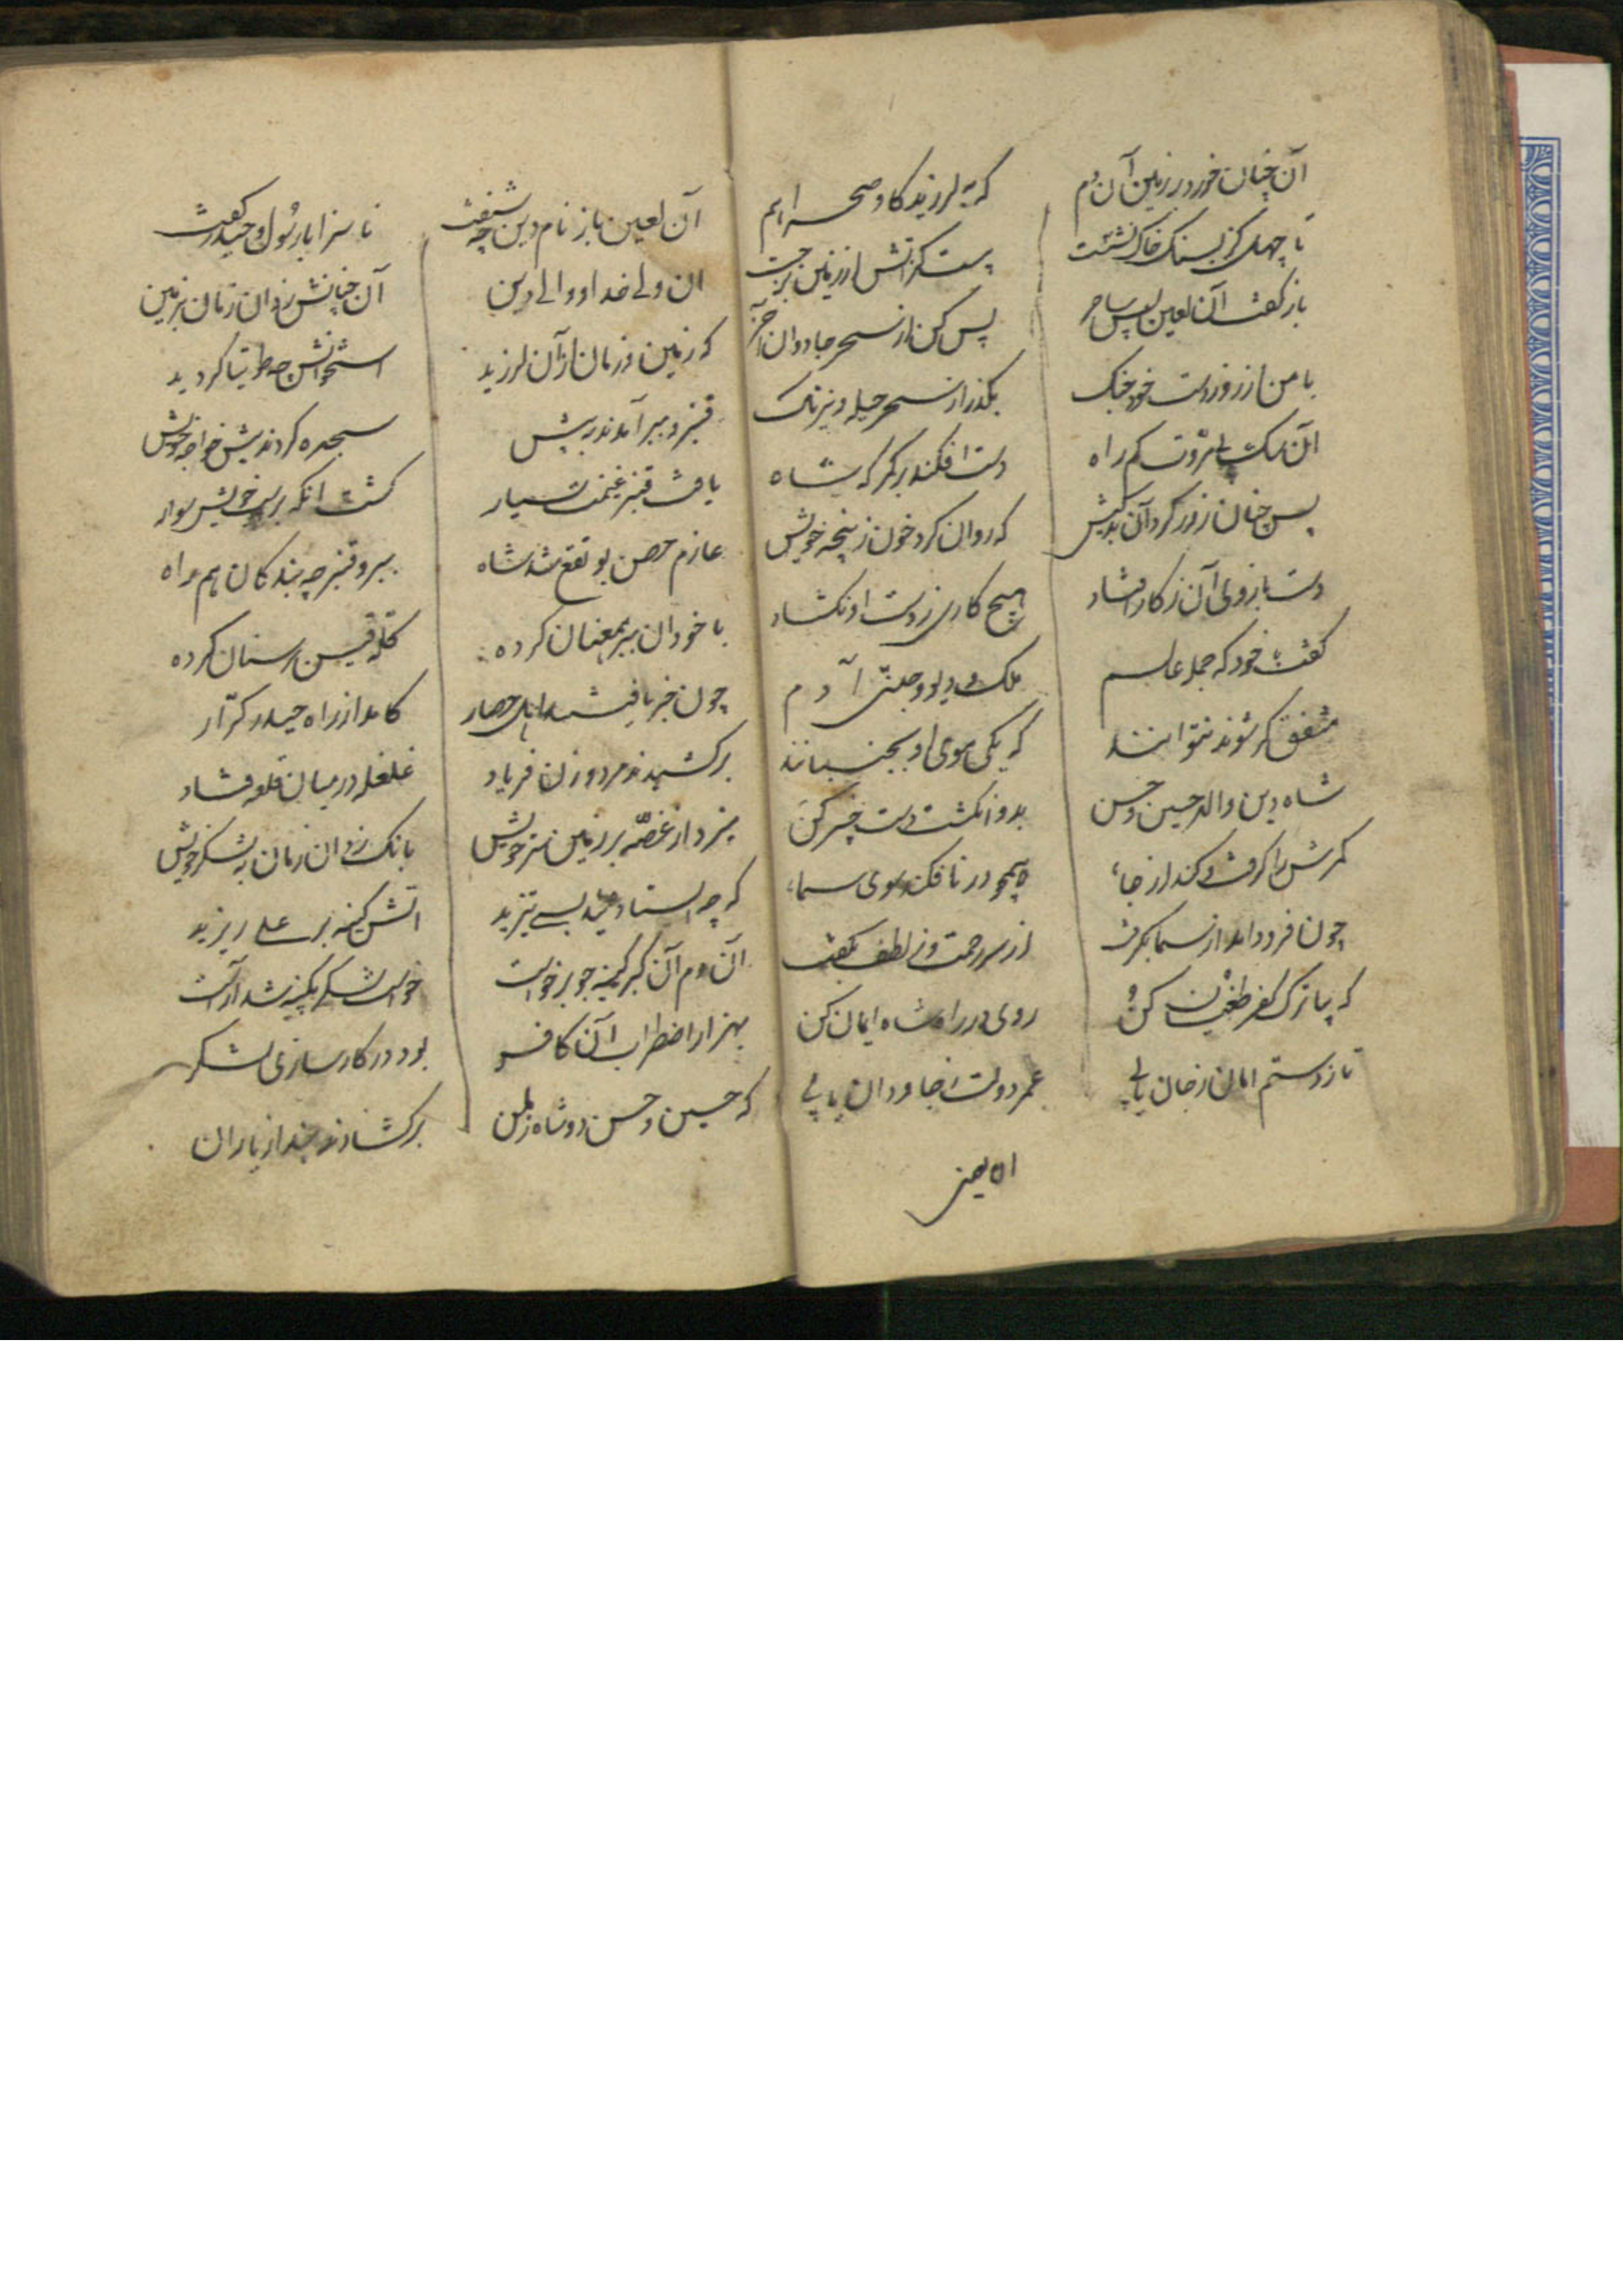 آن چنان خورد بر زمین آن دم که بلرزید کاو صحرا هم
تا چهل کز بسنک خاک نشست پست کز آتش از زمین برجست
باز کفت آن لعین پس ساحر پس کن از سحر جادوان آخر
با من از زور دست خود جنک بکذر از سحر حیله و نیرنک
آن سک بی مروت کم راه دست افکند بر کمر که شاه
پس چنان زور کرد آن بدکیش که روان کرد خون ز پنجه خویش
دست بازوی آن ز کار افتاد هیچ کاری ز دست او نکشاد
کفت خود که جمله عالم ملک و دیو و جن آدم
متفق کر شوند نتوانند که یکی موی او بجنبانند
شاه دین والد حسین و حسن بدو انکشت دست خیبر کن
کمرش را کرفت و کند از جا همچو در نافکند سوی سما
چون فرود امد از سما بکرفت از سر رحمت و ز لطف بکفت
که بیا ترک کفر طغیان کن روی در راه شاه ایمان کن
تا ز دستم امان ز جان یابی عمر دولت جاودان یابی
آن لعین باز نام دین چه شنفت ناسزا با رسول و حیدر کفت
ان ولی خدا و والی دین آن چنانش زد ان زمان بزمین
که زمین و زمان از آن لرزید استخوانش طوطیا کردید
قنبر و ببر آمدند به پیش سجده کردند پیش خواجه خویش
یافت قنبر غنیمت بسیار کشت انکه بر خویش سوار
عازم حصن بو تقع شد شاه ببر و قنبر چه بندکان هم راه
با خود ان ببر همعنان کرده کله قیس بر سنان کرده
چون خبر یافتند اهل حصار کامد از راه حیدر کرار
برکشیدند مرد و زن فریاد غلغله در میان قلعه فتاد
میزد از غصه بر زمین سر خویش بانک زد ان زمان به لشکر خویش
که چه استاده‌اید بستیزید اتش کینه بر علی ریزید
آن دم آن کبر کینه جو برخواست خواست لشکر
بهزار اضطراب آن کافر بود در کارسازی لشکر
که حسین و حسن دو شاه زمن برکشادند چند از یاران